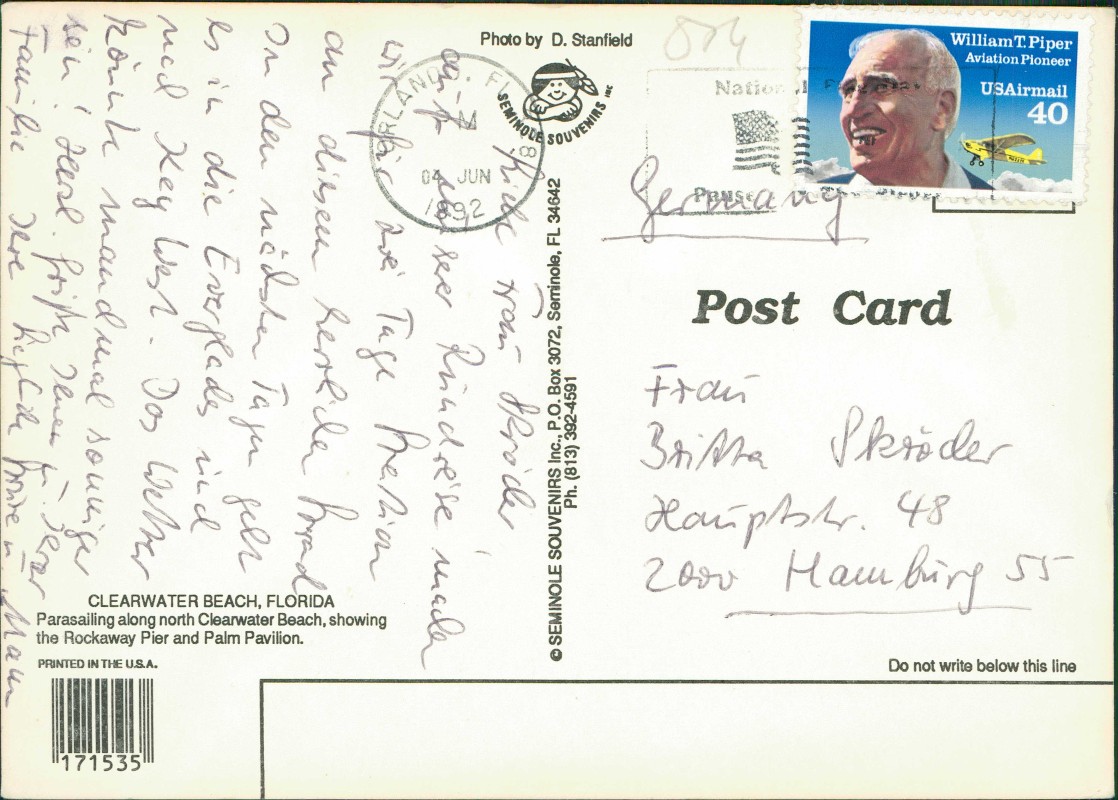 Photo by D. Stanfield
SEMINOLE SOUVENIRS INC
ORLANDO, FL 328
04 JUN
1992
William T. Piper
Aviation Pioneer
USAirmail
40
Germany
Post Card
Frau
Britta Schröder
Hauptstr. 48
2000 Hamburg 55
Liebe Frau Schröder
auf unserer Rundreise machen
wir hier drei Tage Station
an diesem herrlichen Strand
In den nächsten Tagen geht
es in die Everglades und
nach Key West. Das Wetter
könnte manchmal sonniger
sein! Herzl. Grüße Ihnen u. Ihrer
Familie Ihre
© SEMINOLE SOUVENIRS Inc., P.O. Box 3072, Seminole, FL 34642
Ph. (813) 392-4591
CLEARWATER BEACH, FLORIDA
Parasailing along north Clearwater Beach, showing
the Rockaway Pier and Palm Pavilion.
PRINTED IN THE U.S.A.
171535
Do not write below this line